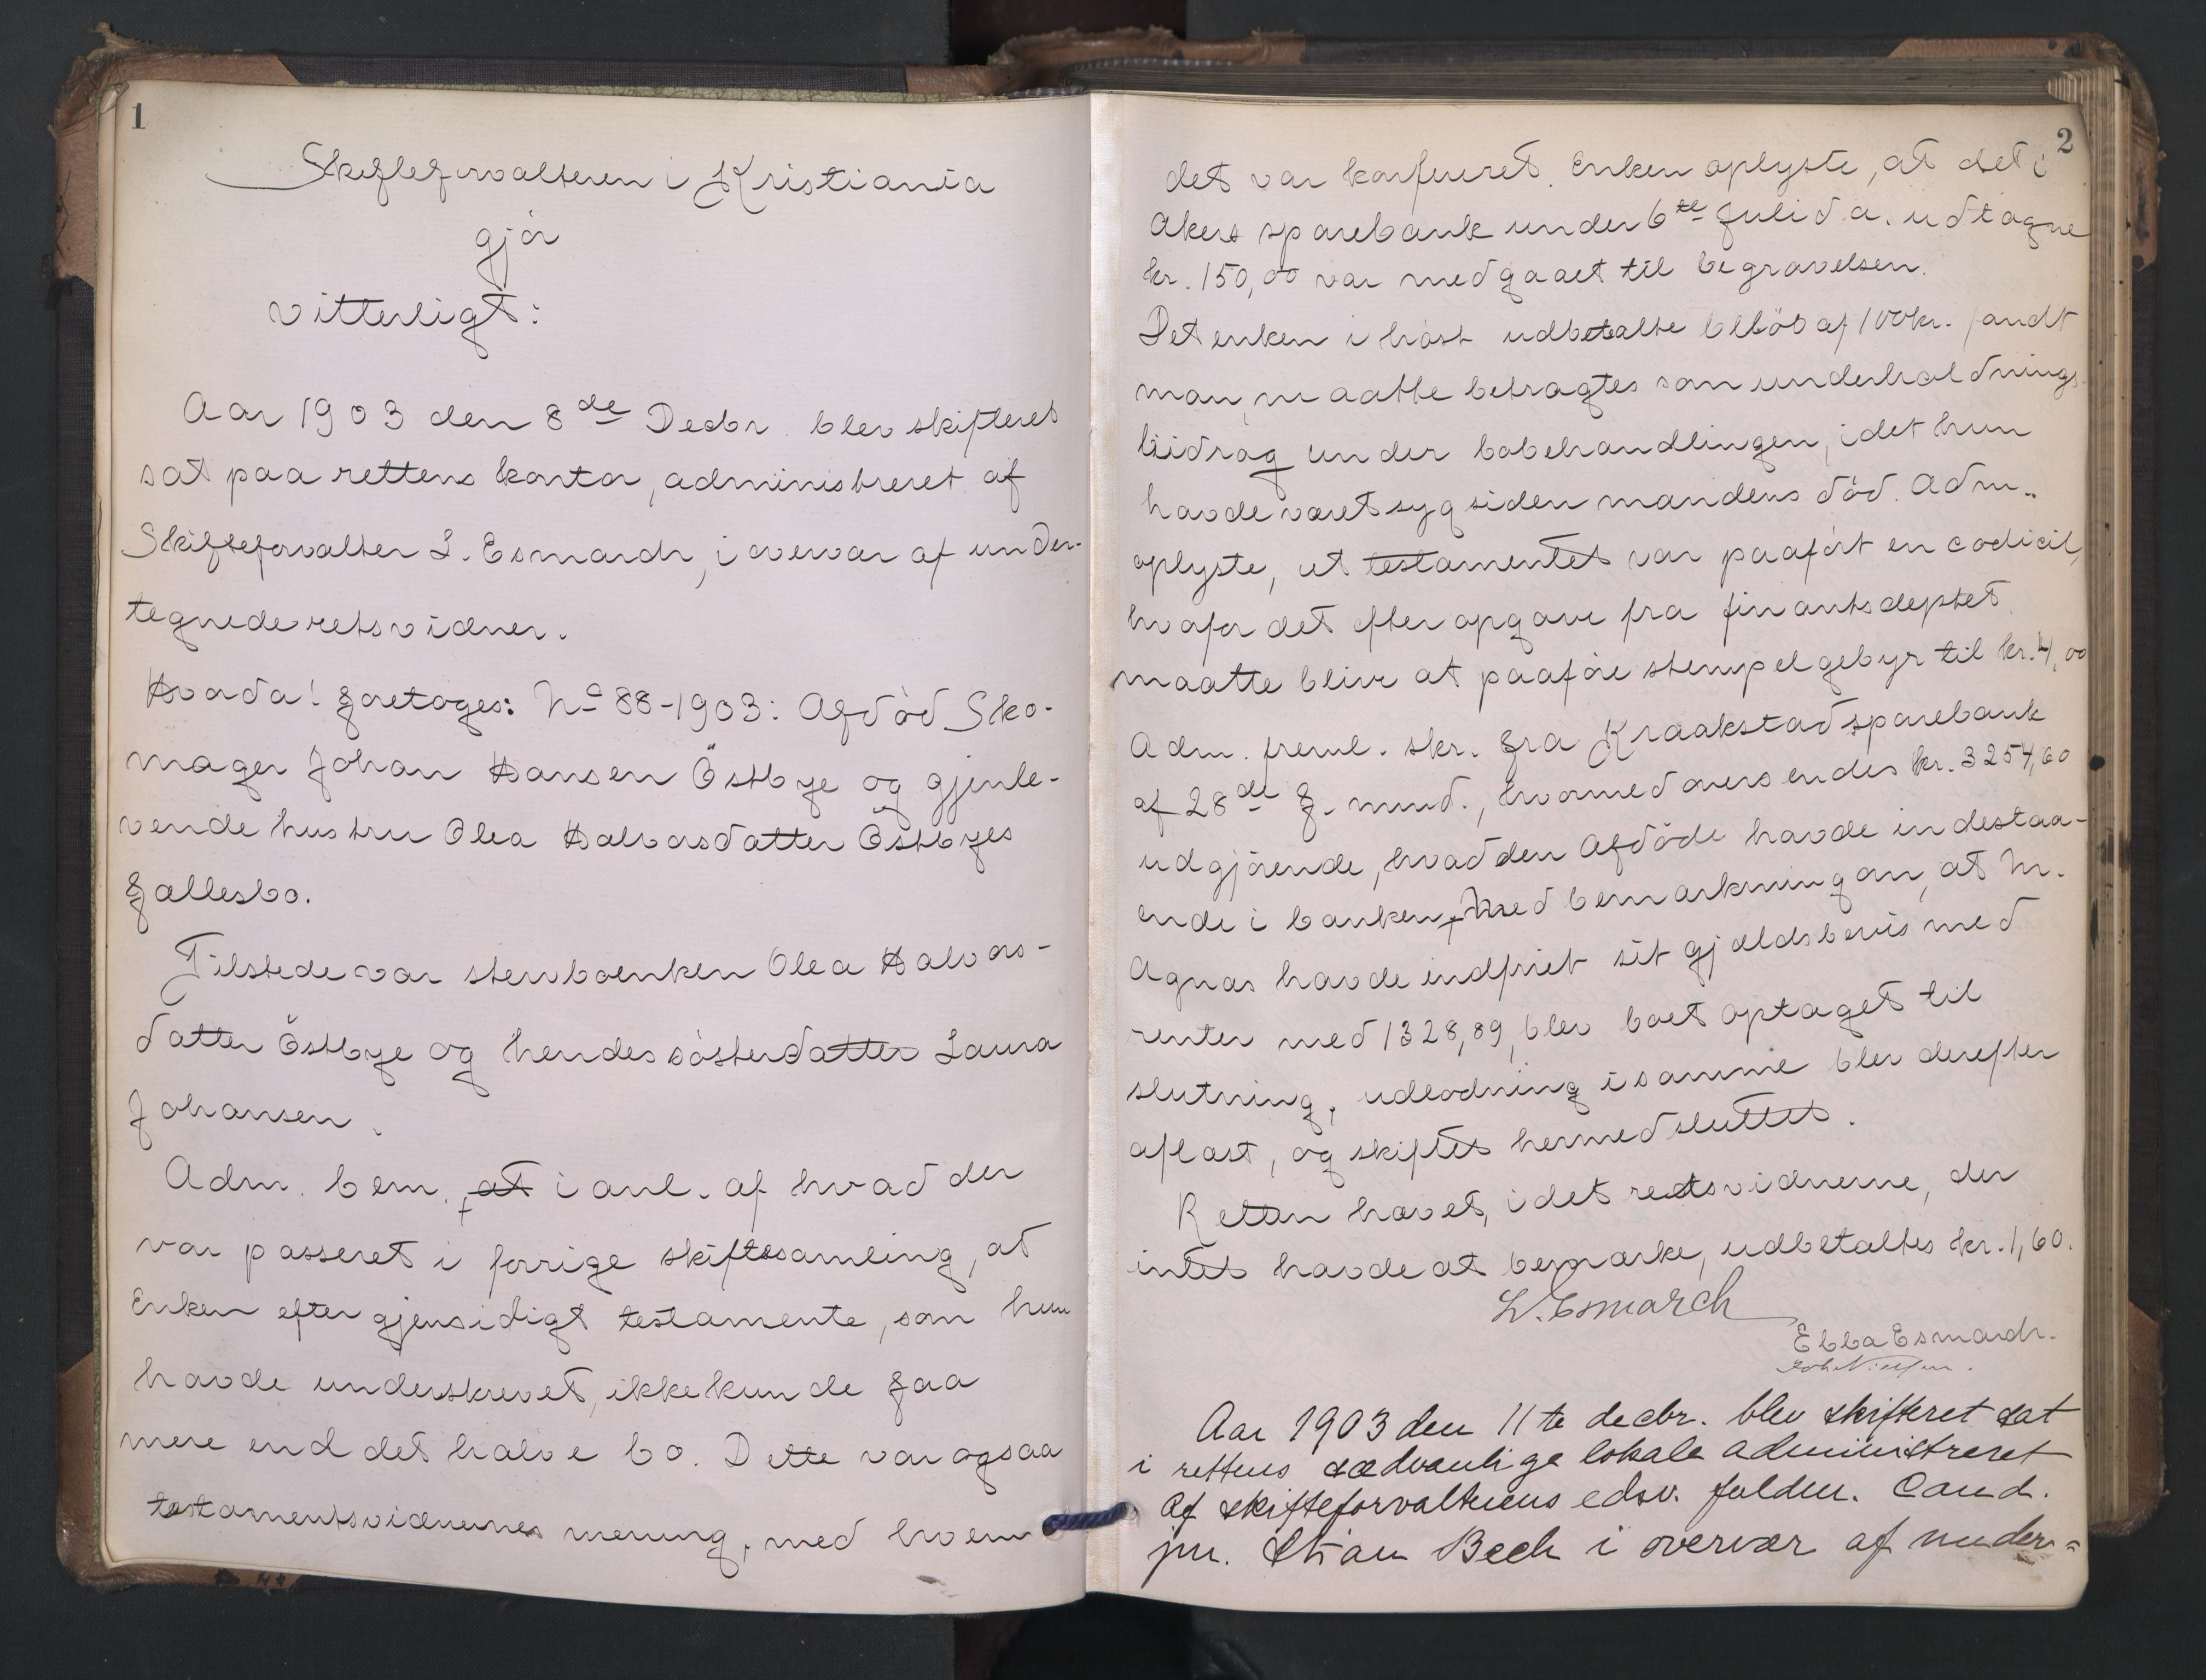 1
Skifteforvalteren i Kristiania
gjør
vitterligt:
Aar 1903 den 8de Decbr. blev skifteret
sat paa rettens kontor, administreret af
Skifteforvalter L. Esmarch, i overvær af under-
tegnede retsvidner.
Hvada! foretoges: No 88-1903: Afdød Sko-
mager Johan Hansen Östbye og gjenle-
vende hustru Olea Halvorsdatter Östbyes
fællesbo.
Tilstede var stervboenken Olea Halvors-
datter Östbye og hendes søsterdatter Laura
Johansen.
Adm. bem., at i anl. af hvad der
var passeret i forrige skiftesamling, at
Enken efter gjensidigt testamente, som hun
havde underskrevet, ikke kunde faa
mere end det halve bo. Dette var ogsaa
testamentsvidnernes mening, med hvem
2
det var konfereret. Enken oplyste, at det i
Akers sparebank under 6te Juli d.a. udtagne
kr. 150,00 var medgaaet til begravelsen.
Det enken i høst udbetalte beløb af 100 kr. fandt
man, maatte betragtes som underholdnings-
bidrag under bobehandlingen, idet hun
havde været syg siden mandens død. Adm.
oplyste, at testamentet var paaført en codicil,
hvofor det efter opgave fra finantsdeptet
maatte blive at paaføre stempelgebyr til kr. 4,00
Adm. freml. skr. fra Kraakstad sparebank
af 28de f. mnd., hvormed oversendes kr. 3254,60
udgjørende, hvad den Afdøde havde indestaa-
ende i banken, Med bemærkning om, at Hr.
Agnæs havde indfriet sit gjældsbevis med
renter med 1328,89, blev boet optaget til
slutning, udlodning i samme blev derefter
aflæst, og skiftet hermed sluttet.
Retten hævet, idet retsvidnerne, der
intet havde at bemærke, udbetaltes kr. 1,60.
L. Esmarch
Ebba Esmarch.
Aar 1903 den 11te decbr. blev skifteret sat
i rettens sædvanlige lokale administreret
af skifteforvalterens edsv. fuldm. Cand.
jur. Stian Bech i overvær af under=